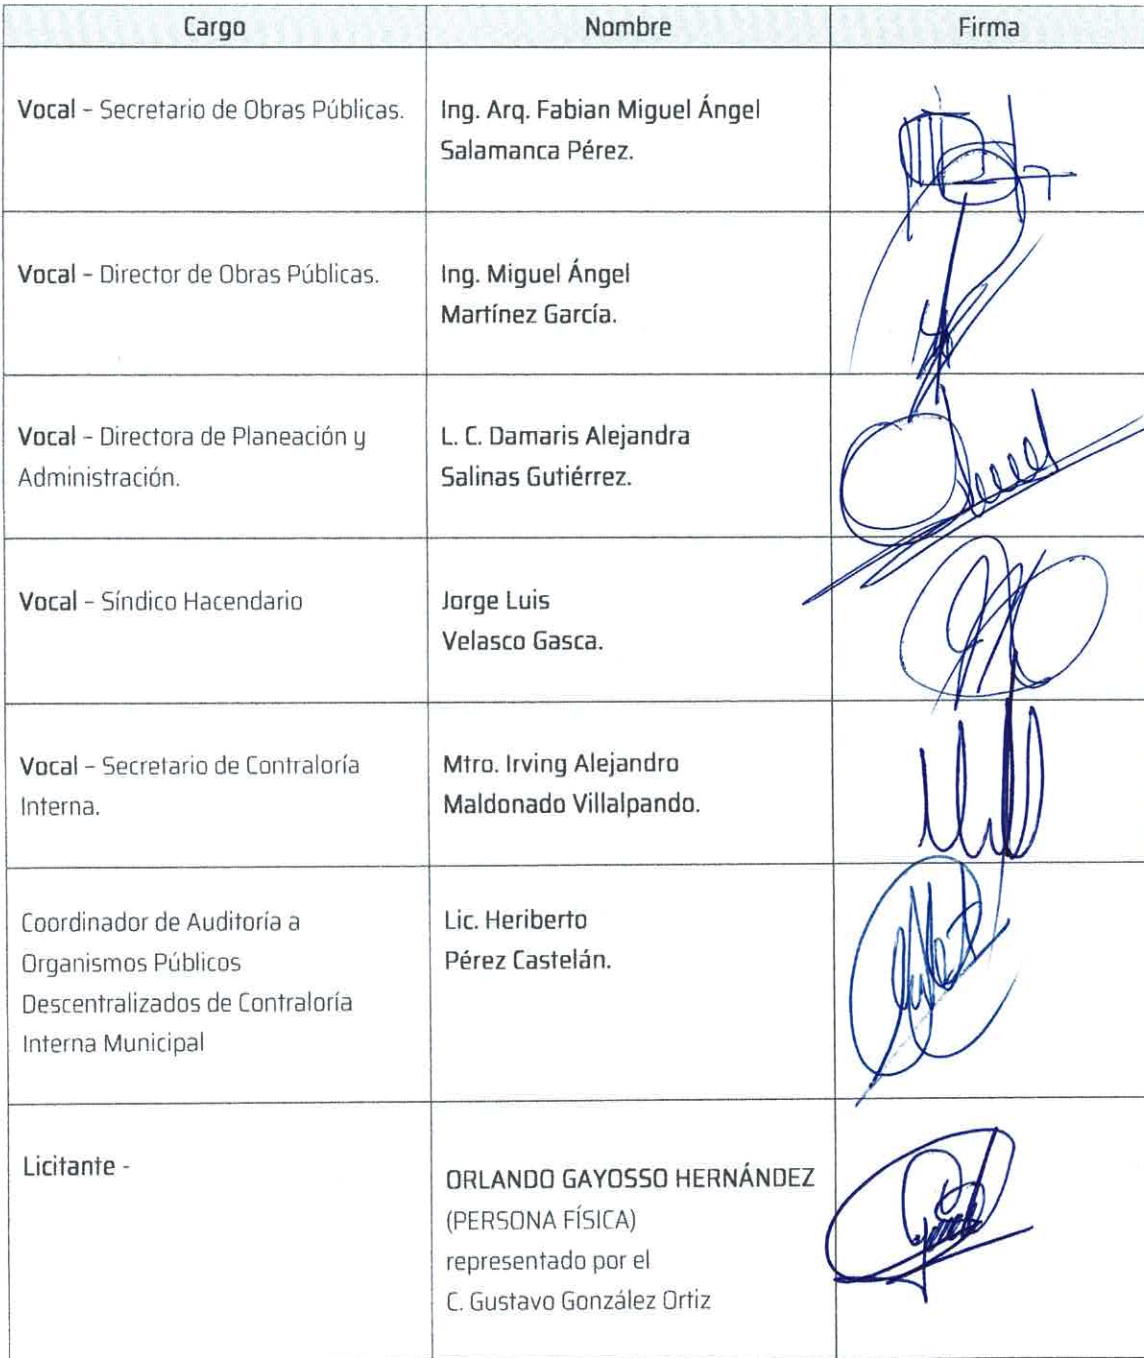 Cargo Nombre Firma
Vocal - Secretario de Obras Públicas. Ing. Arq. Fabian Miguel Ángel
Salamanca Pérez.
Vocal - Director de Obras Públicas. Ing. Miguel Ángel
Martínez García.
Vocal - Directora de Planeación y L. C. Damaris Alejandra
Administración. Salinas Gutiérrez.
Vocal - Síndico Hacendario Jorge Luis
Velasco Gasca.
Vocal - Secretario de Contraloría Mtro. Irving Alejandro
Interna. Maldonado Villalpando.
Coordinador de Auditoría a Lic. Heriberto
Organismos Públicos Pérez Castelán.
Descentralizados de Contraloría
Interna Municipal
Licitante - ORLANDO GAYOSSO HERNÁNDEZ
(PERSONA FÍSICA)
representado por el
C. Gustavo González Ortiz